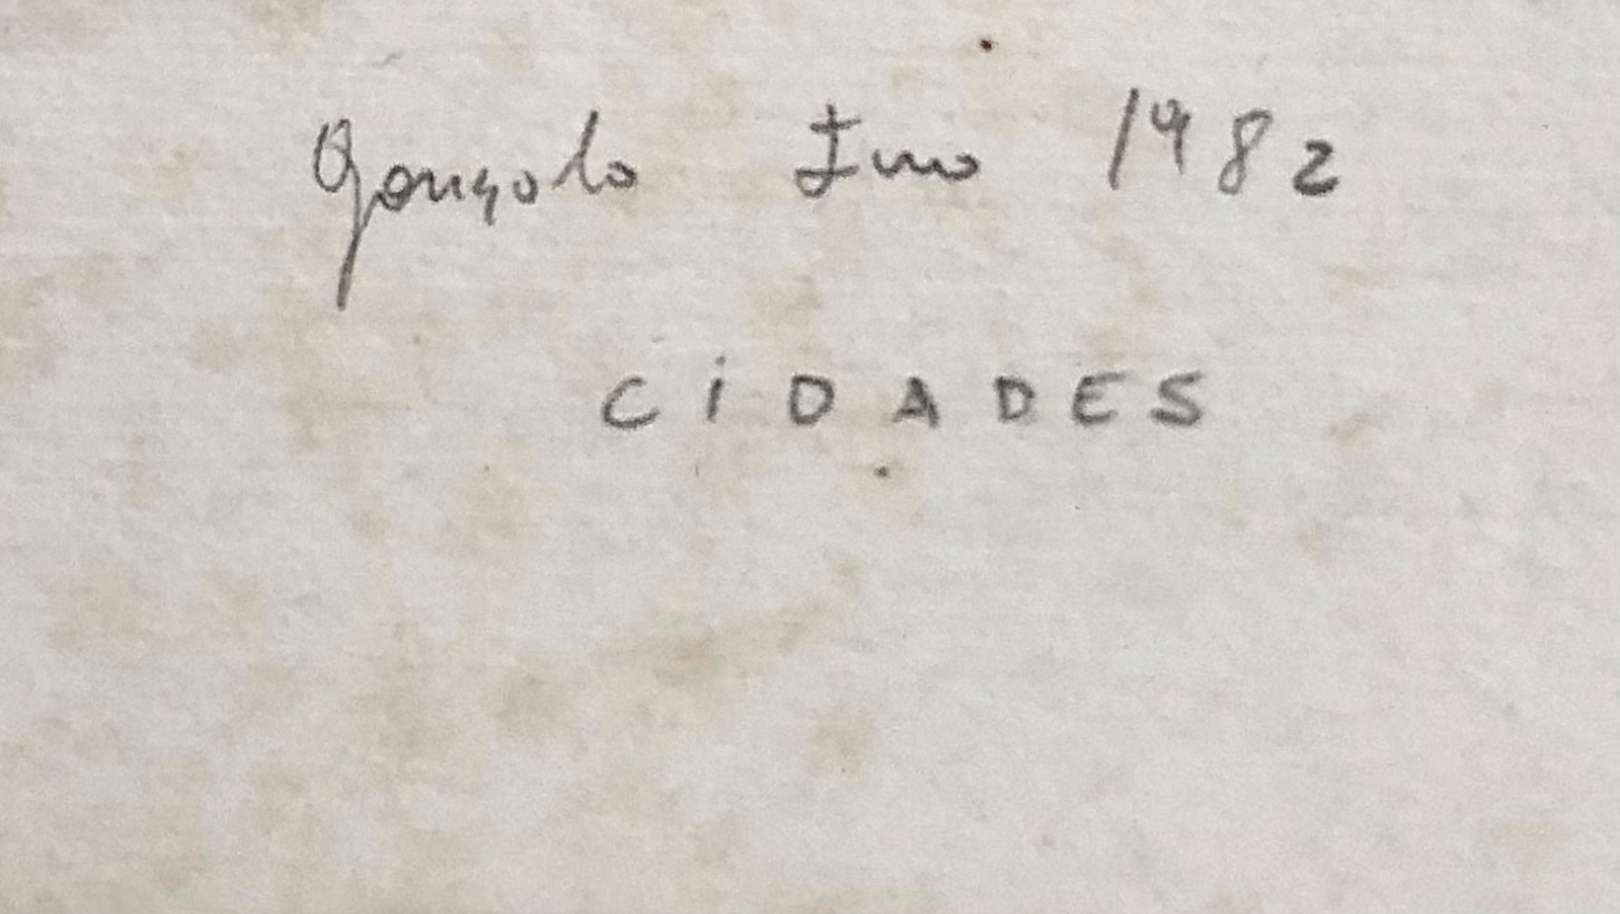 Gonçalo Ivo 1982
CiDADES